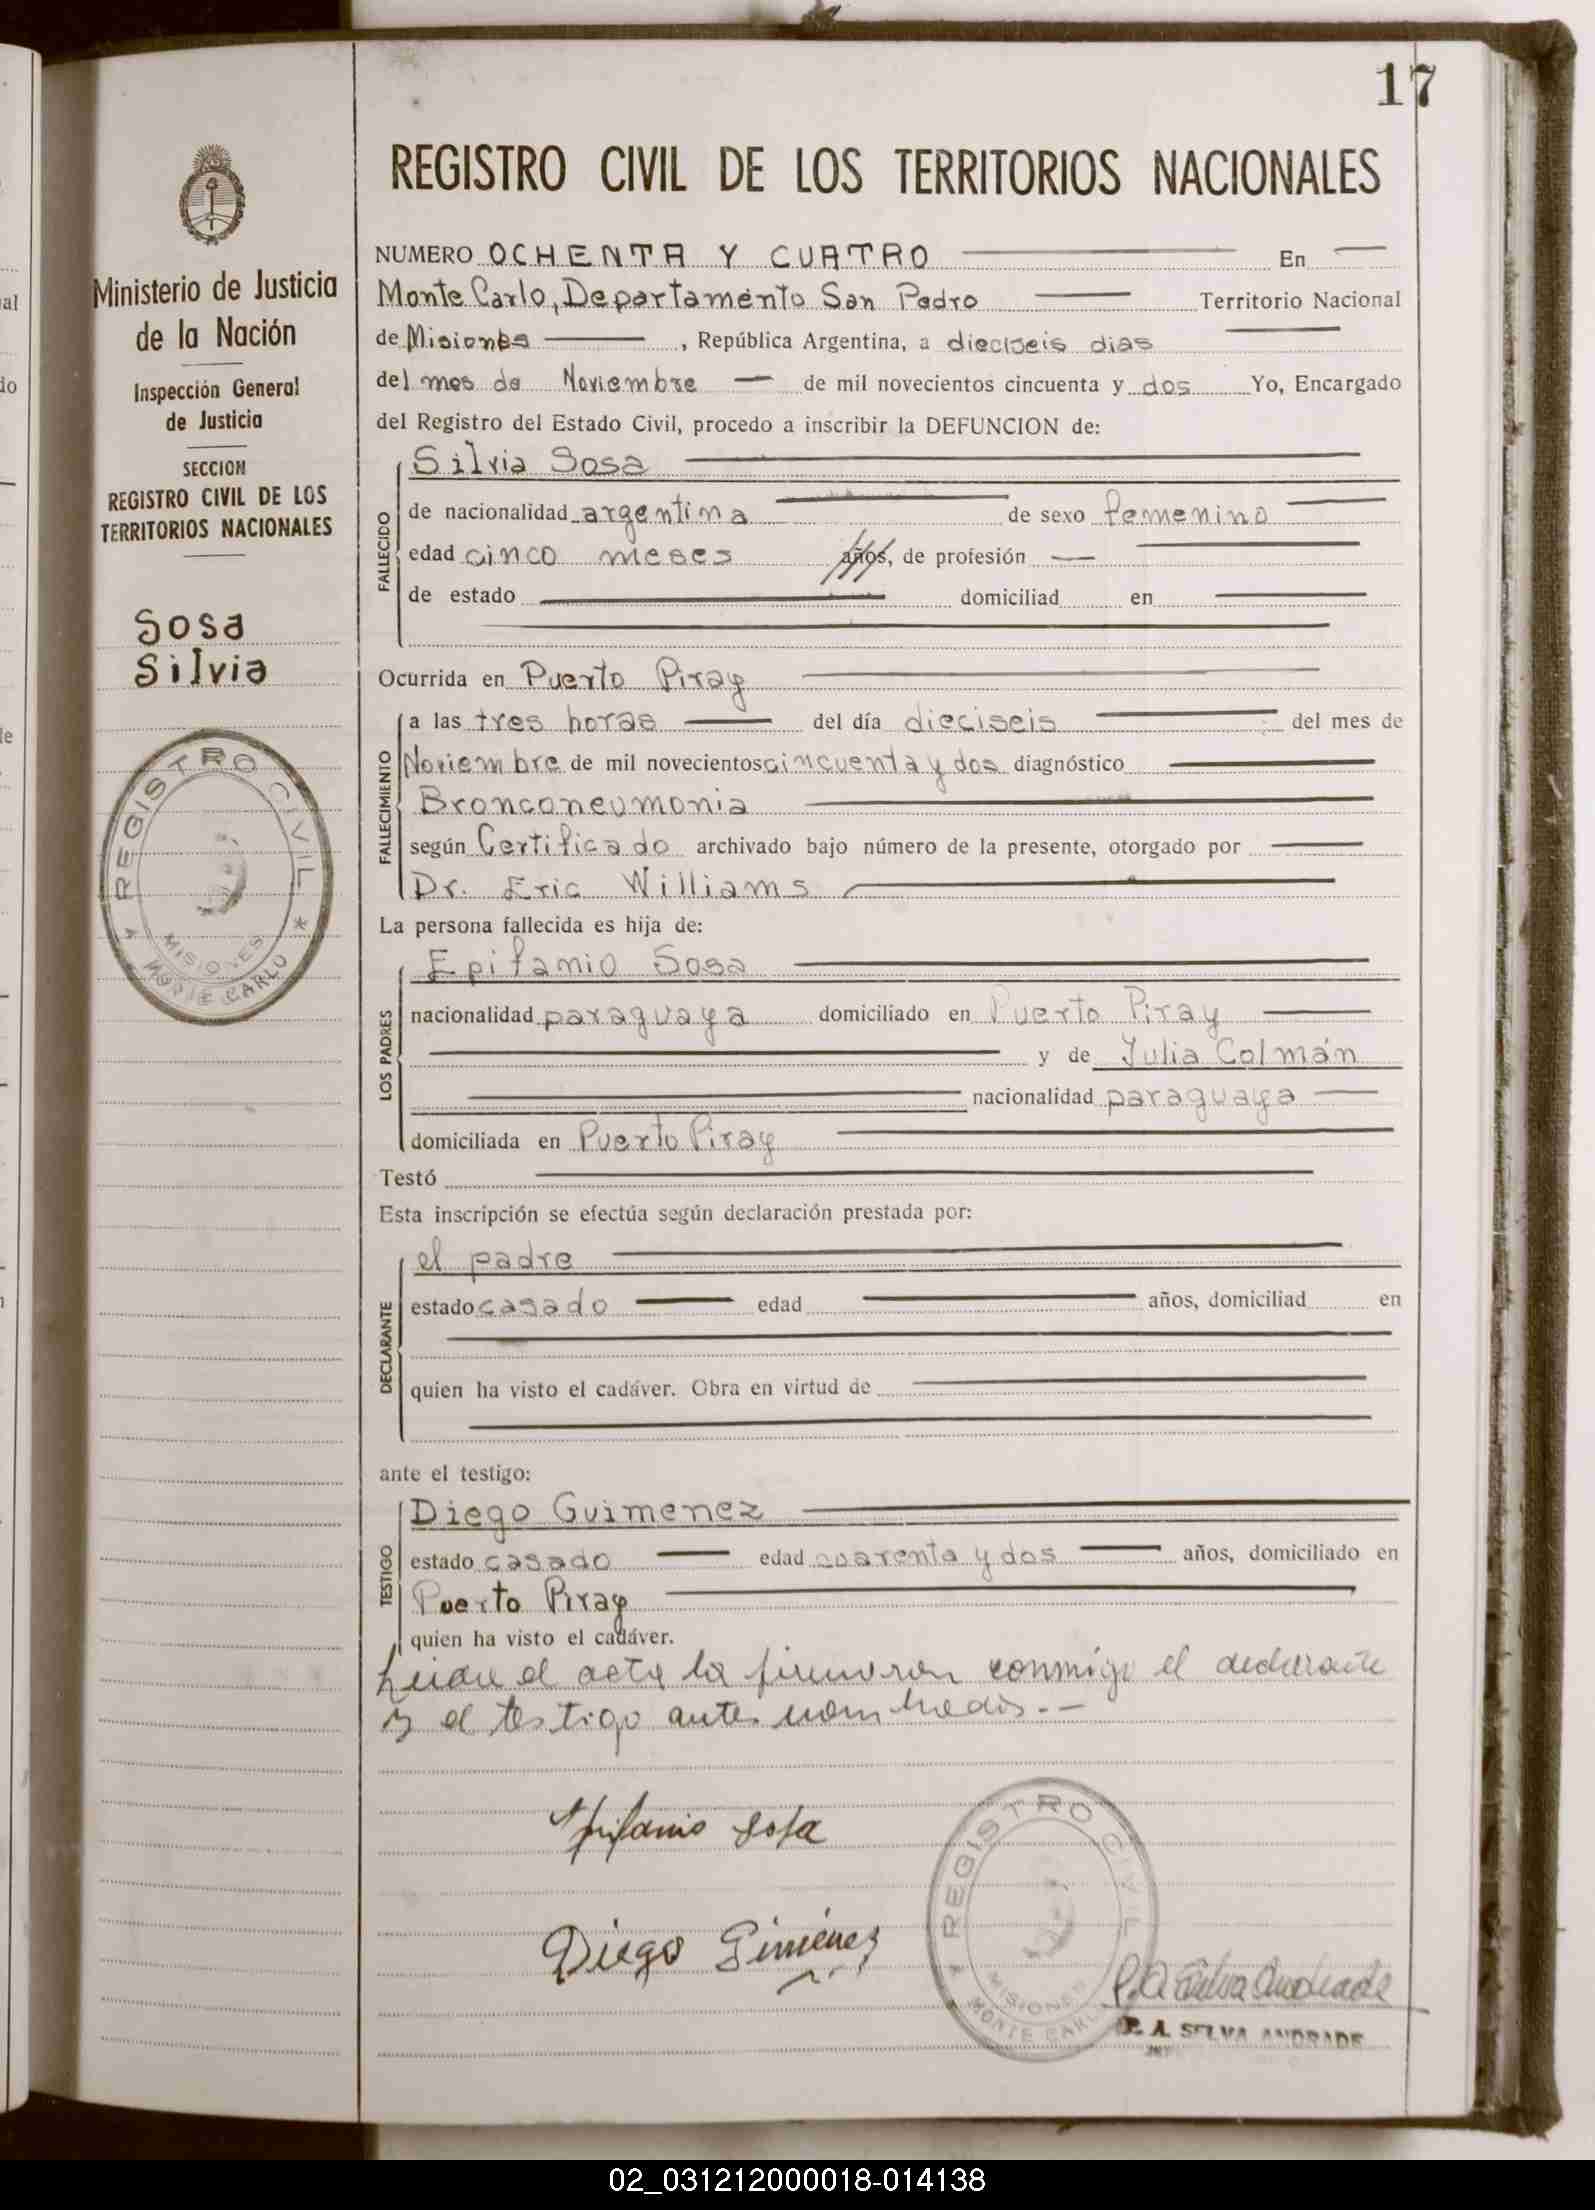 17
REGISTRO CIVIL DE LOS TERRITORIOS NACIONALES
Ministerio de Justicia
de la Nación
Inspección General
de Justicia
SECCION
REGISTRO CIVIL DE LOS
TERRITORIOS NACIONALES
Sosa
Silvia
REGISTRO CIVIL
MISIONES
MONTE CARLO
NUMERO OCHENTA Y CUATRO En
Monte Carlo, Departamento San Pedro Territorio Nacional
de Misiones, República Argentina, a dieciseis dias
del mes de Noviembre de mil novecientos cincuenta y dos Yo, Encargado
del Registro del Estado Civil, procedo a inscribir la DEFUNCION de:
FALLECIDO
Silvia Sosa
de nacionalidad argentina de sexo femenino
edad cinco meses años, de profesión
de estado domiciliad en
Ocurrida en Puerto Piray
FALLECIMIENTO
a las tres horas del día dieciseis del mes de
Noviembre de mil novecientos cincuenta y dos diagnóstico
Bronconeumonia
según Certificado archivado bajo número de la presente, otorgado por
Dr. Eric Williams
La persona fallecida es hija de:
LOS PADRES
Epifanio Sosa
nacionalidad paraguaya domiciliado en Puerto Piray
y de Julia Colmán
nacionalidad paraguaya
domiciliada en Puerto Piray
Testó
Esta inscripción se efectúa según declaración prestada por:
DECLARANTE
el padre
estado casado edad años, domiciliad en
quien ha visto el cadáver. Obra en virtud de
ante el testigo:
TESTIGO
Diego Guimenez
estado casado edad cuarenta y dos años, domiciliado en
Puerto Piray
quien ha visto el cadáver.
el acta la firmaron conmigo el declarante
y el testigo antes nombrados.-
Epifanio Sosa
Diego Giménez
REGISTRO CIVIL
MISIONES
MONTE CARLO
P. A. Selva Andrade
P. A. SELVA ANDRADE
02_031212000018-014138